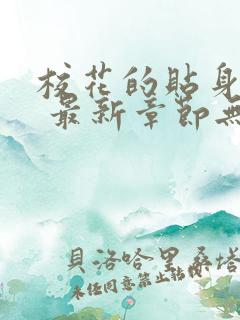 校花的貼身
最新章節無
貝洛哈里桑塔
未经同意禁止转载